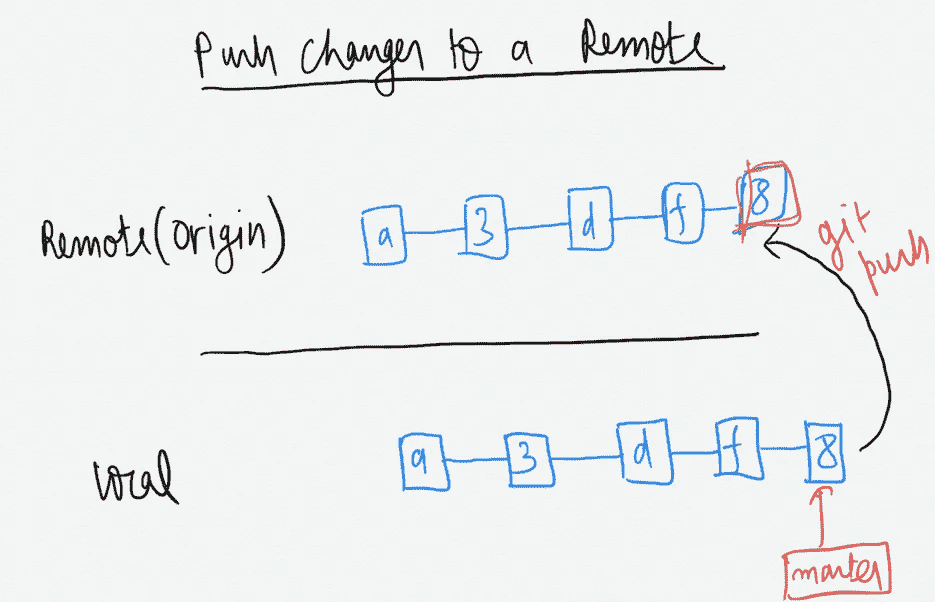 Push Changes to a Remote
Remote(Origin)
a 3 d f 8
git
push
local
a 3 d f 8
master